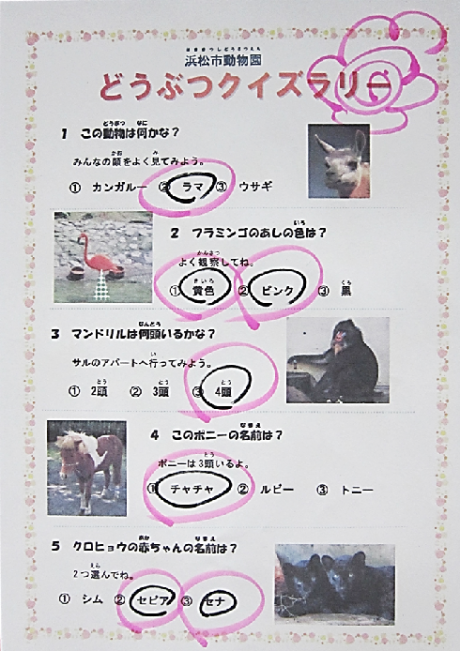 浜松市動物園
どうぶつクイズラリー
1 この動物は何かな?
みんなの顔をよく見てみよう。
① カンガルー ② ラマ ③ ウサギ
2 フラミンゴのあしの色は?
よく観察してね。
① 黄色 ② ピンク ③ 黒
3 マンドリルは何頭いるかな?
サルのアパートへ行ってみよう。
① 2頭 ② 3頭 ③ 4頭
4 このポニーの名前は?
ポニーは3頭いるよ。
① チャチャ ② ルビー ③ トニー
5 クロヒョウの赤ちゃんの名前は?
2つ選んでね。
① シム ② セビア ③ セナ